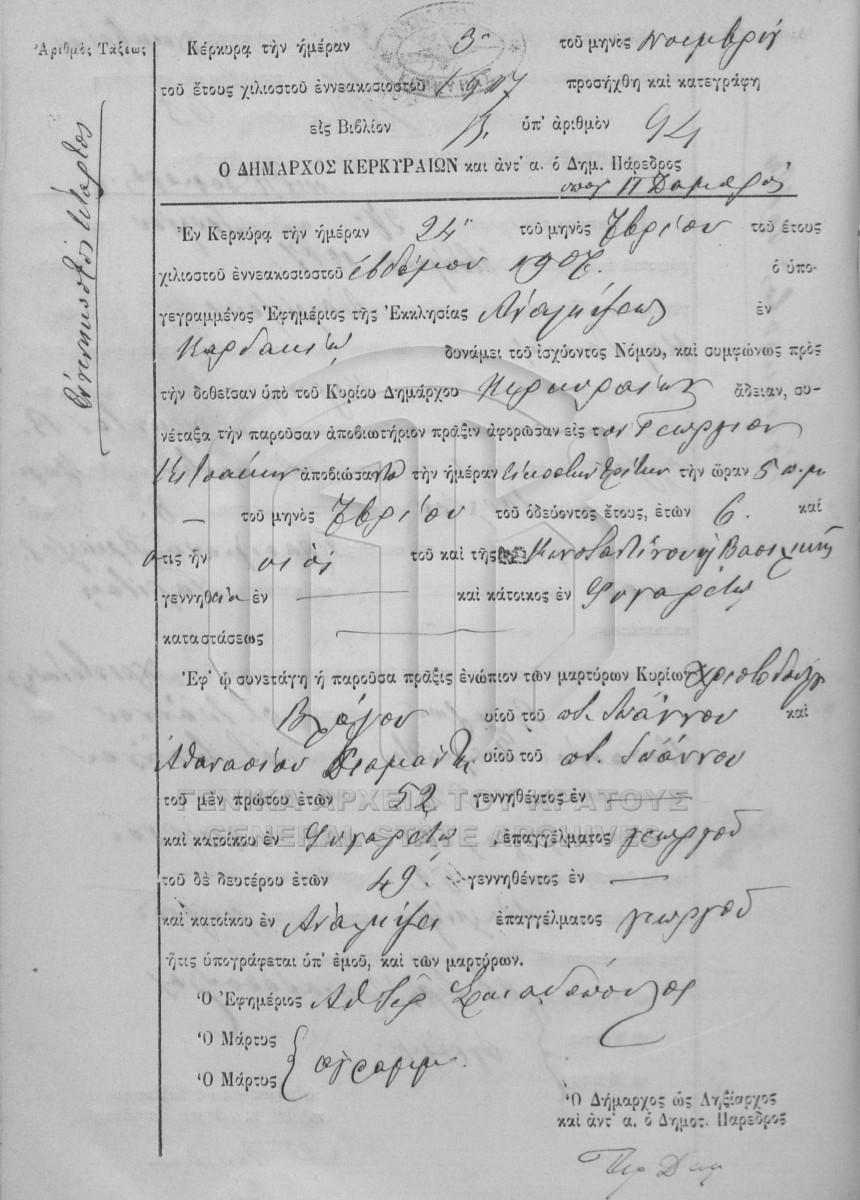 Ἀριθμὸς Τάξεως
Ἐνενηκοστὸς τέταρτος
Κέρκυρα τὴν ἡμέραν 3η τοῦ μηνὸς Νοεμβρίου
τοῦ ἔτους χιλιοστοῦ ἐννεακοσιοστοῦ 1907 προσήχθη καὶ κατεγράφη
εἰς Βιβλίον Β. ὑπ' ἀριθμὸν 94
Ο ΔΗΜΑΡΧΟΣ ΚΕΡΚΥΡΑΙΩΝ καὶ ἀντ' α. ὁ Δημ. Πάρεδρος
Ἐν Κερκύρᾳ τὴν ἡμέραν 24η τοῦ μηνὸς 7βρίου τοῦ ἔτους
χιλιοστοῦ ἐννεακοσιοστοῦ ἑβδόμου 1907. ὁ ὑπο-
γεγραμμένος Ἐφημέριος τῆς Ἐκκλησίας Ἀναλήψεως ἐν
δυνάμει τοῦ ἰσχύοντος Νόμου, καὶ συμφώνως πρὸς
τὴν δοθεῖσαν ὑπὸ τοῦ Κυρίου Δημάρχου Κερκυραίων ἄδειαν, συ-
νέταξα τὴν παροῦσαν ἀποβιωτήριον πρᾶξιν ἀφορῶσαν εἰς τὸν Γεώργιον
ἀποβιώσαντα τὴν ἡμέραν εἰκοστὴν τρίτην τὴν ὥραν 5 π.μ
τοῦ μηνὸς 7βρίου τοῦ ὁδεύοντος ἔτους, ἐτῶν 6. καὶ
ὅστις ἦν υἱὸς τοῦ καὶ τῆς Κωνσταντίνου ἢ Βασιλικῆς
γεννηθεὶς ἐν — καὶ κάτοικος ἐν Συναρέτω
καταστάσεως —
Ἐφ' ᾧ συνετάγη ἡ παροῦσα πρᾶξις ἐνώπιον τῶν μαρτύρων Κυρίων Χριστοδούλου
υἱοῦ τοῦ ποτ. Ἰωάννου καὶ
Ἀθανασίου Διαμάντη υἱοῦ τοῦ ποτ. Ἰωάννου
ΓΕΝΙΚΑ ΑΡΧΕΙΑ ΤΟΥ ΚΡΑΤΟΥΣ
τοῦ μὲν πρώτου ἐτῶν 52 γεννηθέντος ἐν —
GENERAL STATE ARCHIVES
καὶ κατοίκου ἐν Συναρέτω ἐπαγγέλματος γεωργοῦ
τοῦ δὲ δευτέρου ἐτῶν 49. γεννηθέντος ἐν —
καὶ κατοίκου ἐν Ἀναλήψει ἐπαγγέλματος γεωργοῦ
ἥτις ὑπογράφεται ὑπ' ἐμοῦ, καὶ τῶν μαρτύρων.
Ὁ Ἐφημέριος
Ὁ Μάρτυς
Ὁ Μάρτυς ἀγράμμ.
Ὁ Δήμαρχος ὡς Ληξίαρχος
καὶ ἀντ' α. ὁ Δημοτ. Πάρεδρος